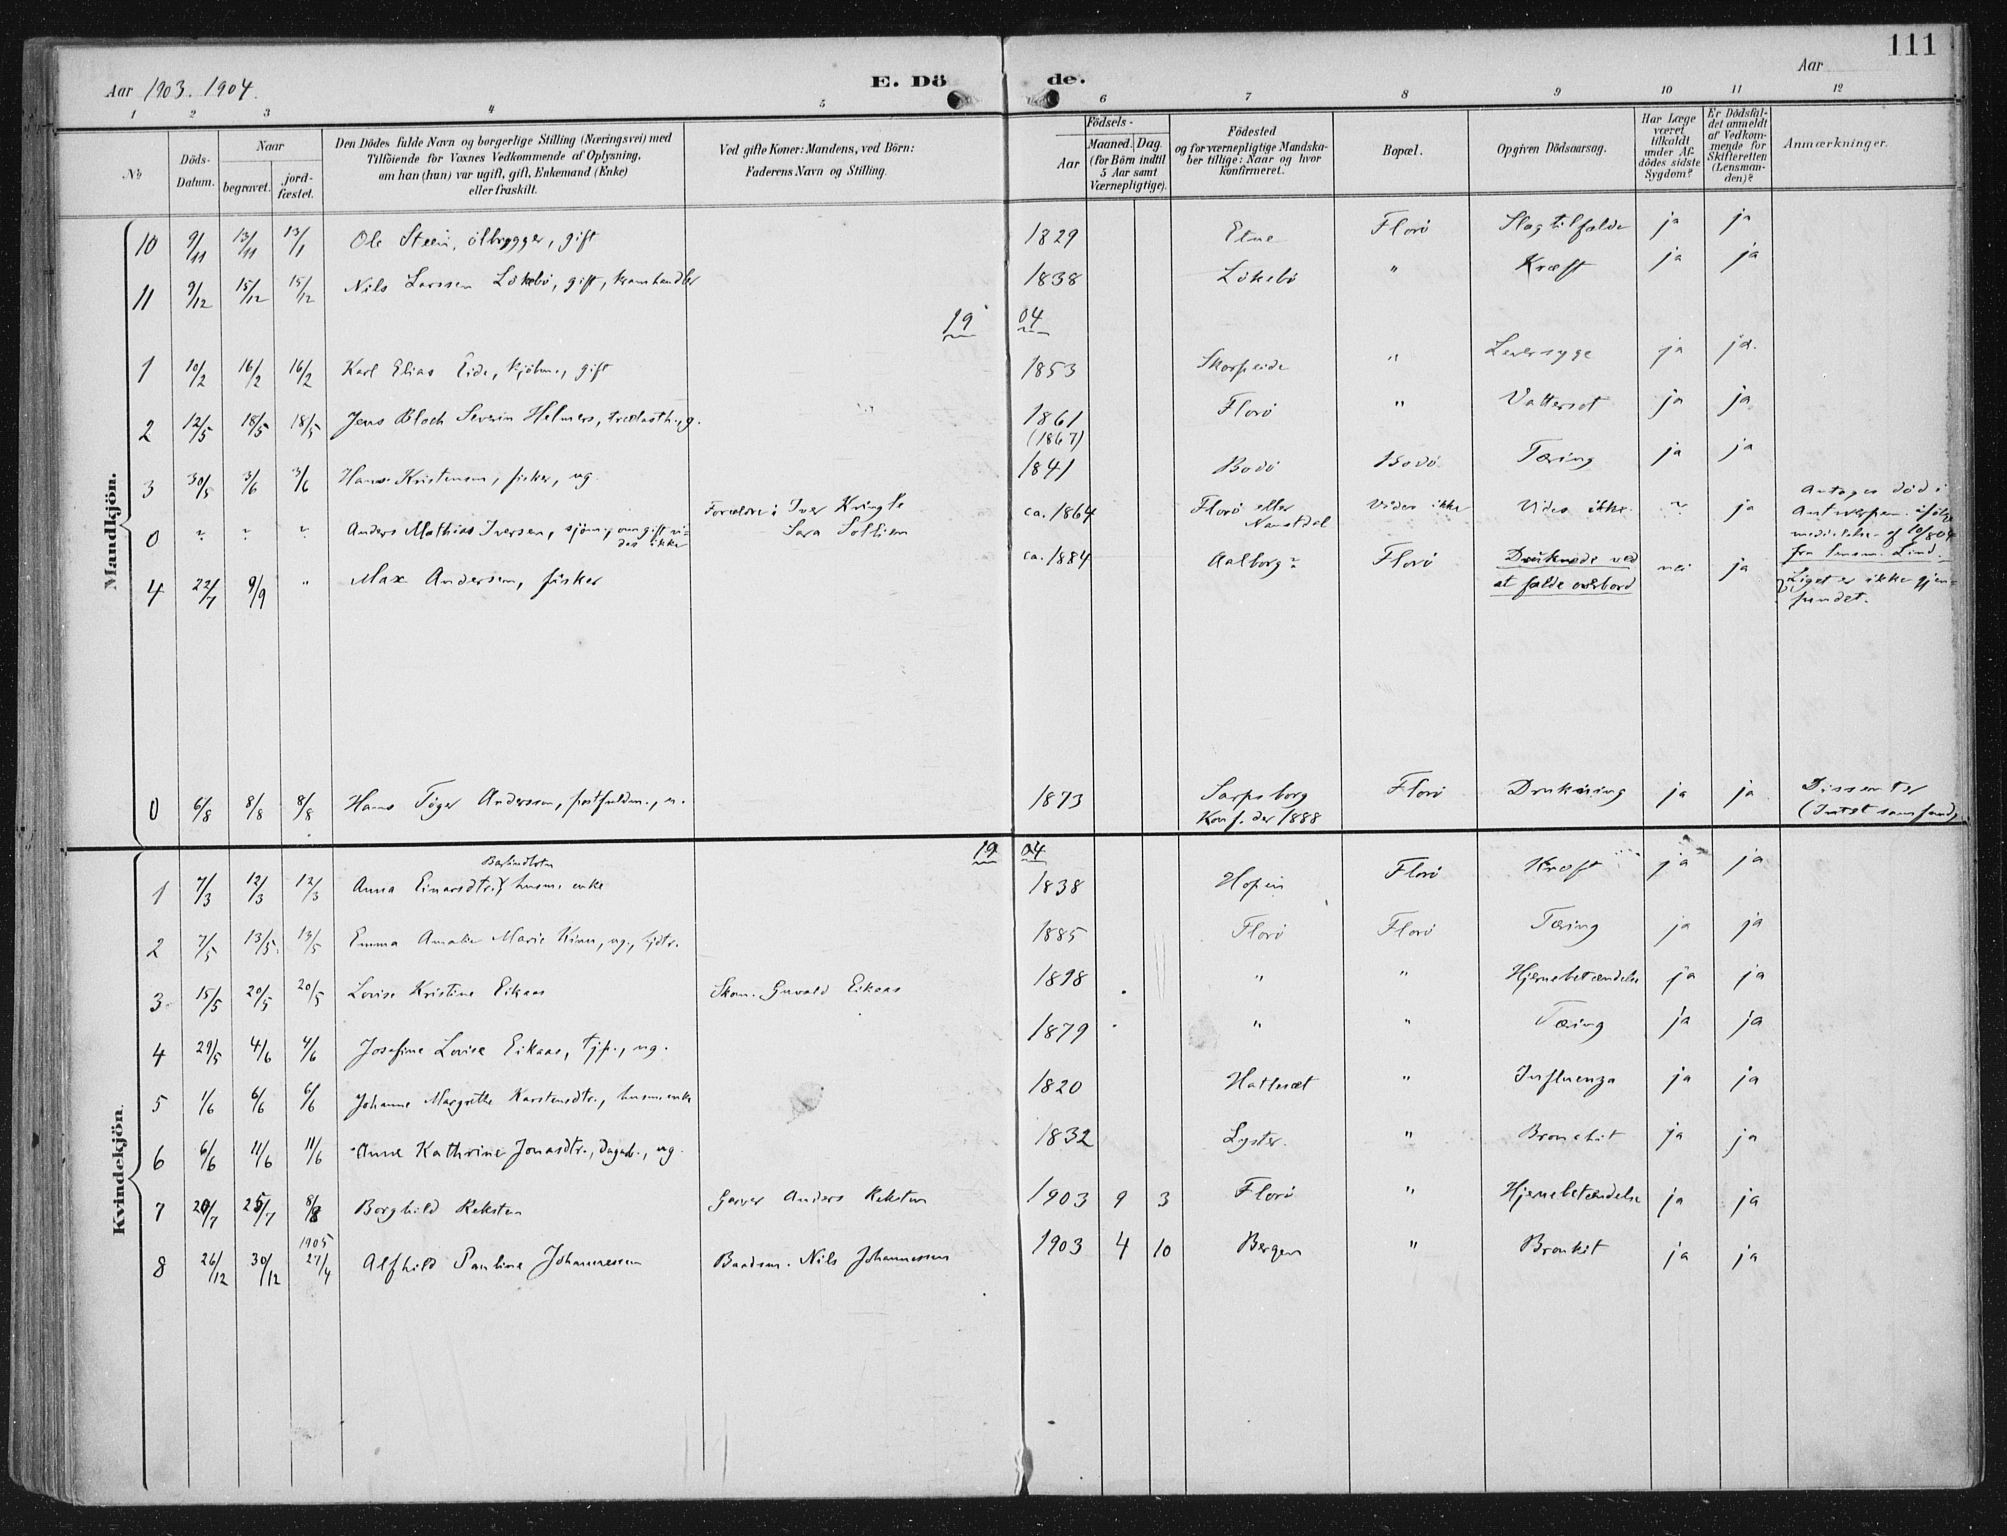 111
Aar 1903. 1904.
E. Döde.
Aar
1 2 3 4 5 6 7 8 9 10 11 12
No
Döds-Datum.
Naar
begravet.
jord-fæstet.
Den Dödes fulde Navn og borgerlige Stilling (Næringsvei) med
Tilföiende for Voxnes Vedkommende af Oplysning,
om han (hun) var ugift, gift, Enkemand (Enke)
eller fraskilt.
Ved gifte Koner: Mandens, ved Börn:
Faderens Navn og Stilling.
Födsels-
Aar
Maaned. Dag.
(for Börn indtil
5 Aar samt
Værnepligtige).
Födested
og for værnepligtige Mandska-
ber tillige: Naar og hvor
konfirmeret.
Bopæl.
Opgiven Dödsaarsag.
Har Læge
været
tilkaldt
under Af-
dödes sidste
Sygdom?
Er Dödsfal-
det anmeldt
af Vedkom-
mende for
Skifteretten
(Lensman-
den)?
Anmærkninger.
Mandkjön.
10 9/11 13/11 13/1 Ole Steen, ölbrygger, gift 1829 Etne Florö Slagtilfælde ja ja
11 9/12 15/12 15/12 Nils Larssen Lökebö, gift, kramhandler 1838 Lökebö " Kræft ja ja
1904
1 10/2 16/2 16/2 Karl Elias Eide, kjöbm., gift 1853 Skorpeide " Leversyge ja ja.
2 12/5 18/5 18/5 Jens Bloch Severin Helmers, trælasth., g. 1861 Florö " Vattersot ja ja
(1867)
3 30/5 3/6 3/6 Hans Kristensen, fisker, ug. 1841 Bodö Bodö Tæring ja ja
0 ? ? ? Anders Mathias Iversen, sjöm., om gift vi-
des ikke
Forældre: Iver Kringle
Sara Sollien
ca. 1864 Florö eller
Namsdal
Vides ikke Vides ikke ? ja
Antages död i
Antwerpen ifölge
meddelelse af 10/8 04
fra lensm. Lind.
4 22/7 9/9 " Max Andersen, fisker ca. 1884 Aalborg? Florö Druknede ved
at falde overbord
nei ja
Liget er ikke gjen-
fundet.
0 6/8 8/8 8/8 Hans Töger Anderssen, postfuldm., u. 1873 Sarpsborg Florö Drukning ja ja Dissenter
Konf. der 1888
Kvindekjön.
1904
1 7/3 12/3 12/3 Anna Einarsdtr. husm. enke 1838 Hopen Florö Kræft ja ja
2 7/5 13/5 13/5 Emma Amalie Marie Kinn, ug., hjdtr. 1885 Florö Florö Tæring ja ja
3 15/5 20/5 20/5 Lovise Kristine Eikaas Skom. Guvald Eikaas 1898 " " Hjernebetændelse ja ja
4 29/5 4/6 4/6 Josefine Lovise Eikaas, tjp., ug. 1879 " " Tæring ja ja
5 1/6 6/6 6/6 Johanne Margrethe Karstensdtr., husm enke 1820 Hatleset " Influenza ja ja
6 6/6 11/6 11/6 Anne Kathrine Jonasdtr., dagarb., ug. 1832 Lyster. " Bronchit ja ja
7 20/7 25/7 8/8 Borghild Reksten Garver Anders Reksten 1903 9 3 Florö " Hjernebetændelse ja ja
8 26/12 30/12 1905 27/4 Alfhild Pauline Johannessen Baadsm. Nils Johannessen 1903 4 10 Bergen " Bronkit ja ja